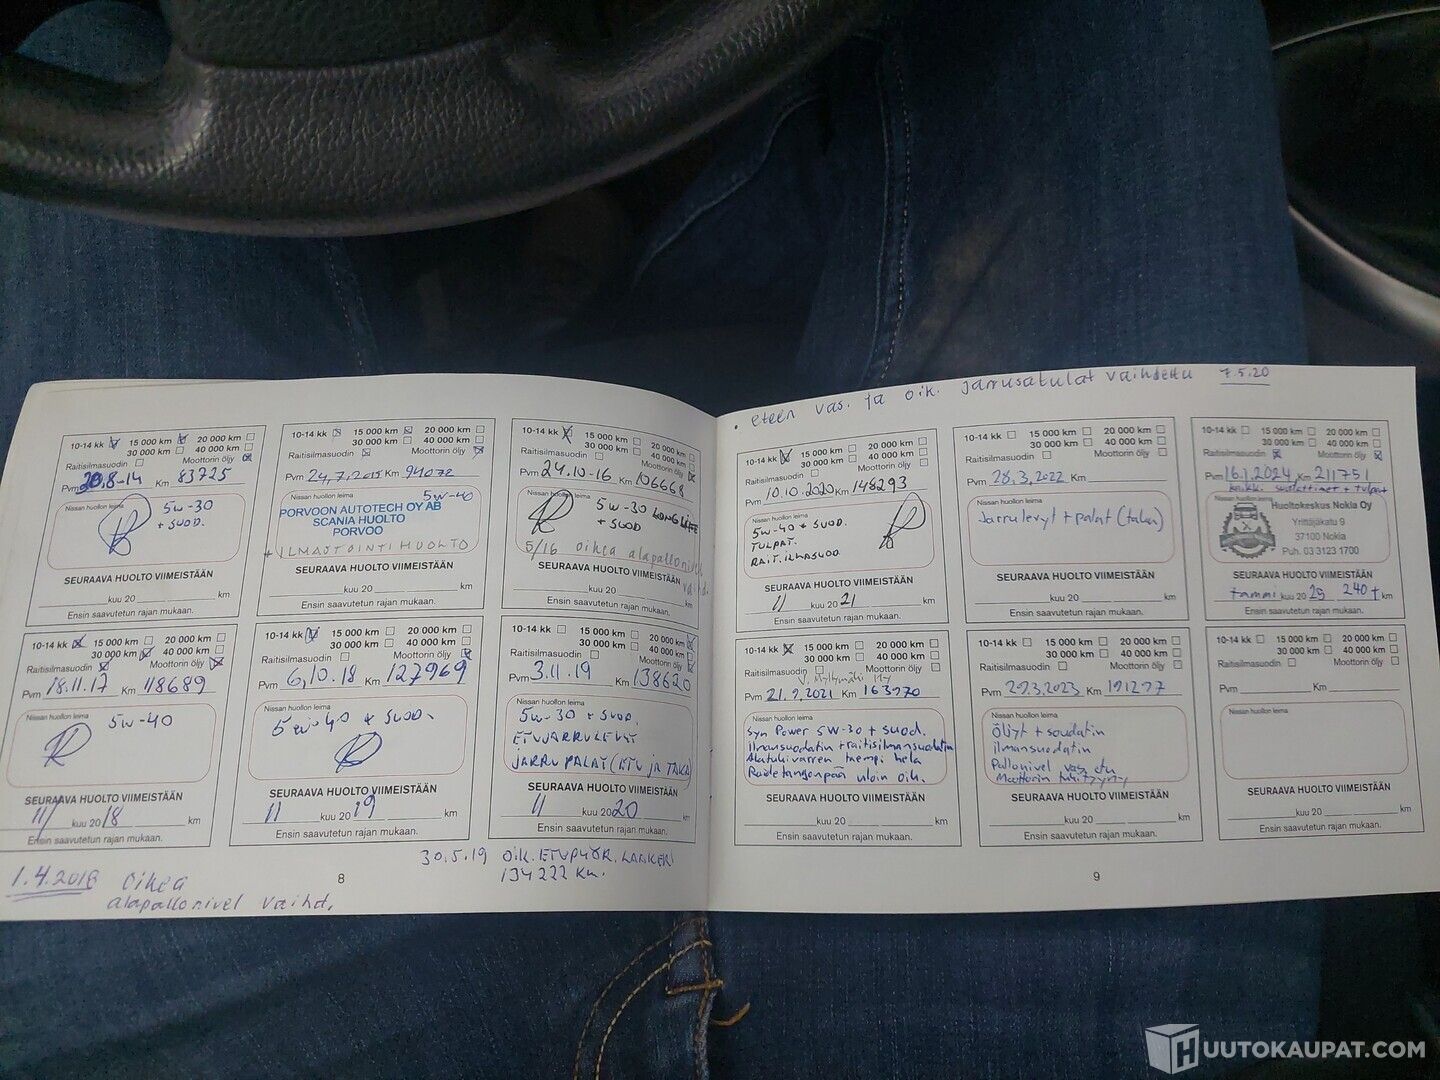 10-14 kk 15 000 km 20 000 km
30 000 km 40 000 km
Raitisilmasuodin Moottorin öljy
Pvm 20,8-14 Km 83725
Nissan huollon leima
5W-30
+ SUOD.
SEURAAVA HUOLTO VIIMEISTÄÄN
kuu 20 km
Ensin saavutetun rajan mukaan.
10-14 kk 15 000 km 20 000 km
30 000 km 40 000 km
Raitisilmasuodin Moottorin öljy
Pvm 24,7,2015 Km 94072
Nissan huollon leima
5W-40
PORVOON AUTOTECH OY AB
SCANIA HUOLTO
PORVOO
+ ILMASTOINTI HUOLTO
SEURAAVA HUOLTO VIIMEISTÄÄN
kuu 20 km
Ensin saavutetun rajan mukaan.
10-14 kk 15 000 km 20 000 km
30 000 km 40 000 km
Raitisilmasuodin Moottorin öljy
Pvm 24.10-16 Km 106668
Nissan huollon leima
5W-30 LONGLIFE
+ SUOD
5/16 oikea alapallonivel
SEURAAVA HUOLTO VIIMEISTÄÄN
kuu 20 km
Ensin saavutetun rajan mukaan.
10-14 kk 15 000 km 20 000 km
30 000 km 40 000 km
Raitisilmasuodin Moottorin öljy
Pvm 18.11.17 Km 118689
Nissan huollon leima
5W-40
SEURAAVA HUOLTO VIIMEISTÄÄN
11 kuu 2018 km
Ensin saavutetun rajan mukaan.
10-14 kk 15 000 km 20 000 km
30 000 km 40 000 km
Raitisilmasuodin Moottorin öljy
Pvm 6,10.18 Km 127969
Nissan huollon leima
5W-40 + SUOD.
SEURAAVA HUOLTO VIIMEISTÄÄN
11 kuu 2019 km
Ensin saavutetun rajan mukaan.
10-14 kk 15 000 km 20 000 km
30 000 km 40 000 km
Raitisilmasuodin Moottorin öljy
Pvm 3.11.19 Km 138620
Nissan huollon leima
5W-30 + SUOD.
ETUJARRULEVYT
JARRUPALAT (ETU JA TAKA)
SEURAAVA HUOLTO VIIMEISTÄÄN
11 kuu 2020 km
Ensin saavutetun rajan mukaan.
30.5.19 OIK. ETUPYÖR. LAAKERI
134222 Km.
8
1.4.2018 Oikea
alapallonivel vaihd.
• eteen vas. ja oik. jarrusatulat vaihdettu 7.5.20
10-14 kk 15 000 km 20 000 km
30 000 km 40 000 km
Raitisilmasuodin Moottorin öljy
Pvm 10.10.2020 Km 148293
Nissan huollon leima
5W-40 + SUOD.
TULPAT.
RAIT.ILMASUOD.
SEURAAVA HUOLTO VIIMEISTÄÄN
11 kuu 2021 km
Ensin saavutetun rajan mukaan.
10-14 kk 15 000 km 20 000 km
30 000 km 40 000 km
Raitisilmasuodin Moottorin öljy
Pvm 28.3.2022 Km
Nissan huollon leima
Jarrulevyt + palat (taka)
SEURAAVA HUOLTO VIIMEISTÄÄN
kuu 20 km
Ensin saavutetun rajan mukaan.
10-14 kk 15 000 km 20 000 km
30 000 km 40 000 km
Raitisilmasuodin Moottorin öljy
Pvm 16.1.2024 Km 211751
kaikki suodattimet + tulpat
Nissan huollon leima
Huoltokeskus Nokia Oy
Yrittäjäkatu 9
37100 Nokia
Puh. 03 3123 1700
SEURAAVA HUOLTO VIIMEISTÄÄN
tammi kuu 2025 240 t km
Ensin saavutetun rajan mukaan.
10-14 kk 15 000 km 20 000 km
30 000 km 40 000 km
Raitisilmasuodin Moottorin öljy
Pvm 21.9.2021 Km 163970
Nissan huollon leima
Syn Power 5W-30 + suod.
ilmansuodatin + raitisilmansuodatin
Alatukivarren taempi hela
Raidetangonpää uloin oik.
SEURAAVA HUOLTO VIIMEISTÄÄN
kuu 20 km
Ensin saavutetun rajan mukaan.
10-14 kk 15 000 km 20 000 km
30 000 km 40 000 km
Raitisilmasuodin Moottorin öljy
Pvm 29.3.2023 Km 191277
Nissan huollon leima
Öljyt + suodatin
ilmansuodatin
Pallonivel vas. etu
Moottorin tukityyny
SEURAAVA HUOLTO VIIMEISTÄÄN
kuu 20 km
Ensin saavutetun rajan mukaan.
10-14 kk 15 000 km 20 000 km
30 000 km 40 000 km
Raitisilmasuodin Moottorin öljy
Pvm Km
Nissan huollon leima
SEURAAVA HUOLTO VIIMEISTÄÄN
kuu 20 km
Ensin saavutetun rajan mukaan.
9
HUUTOKAUPAT.COM